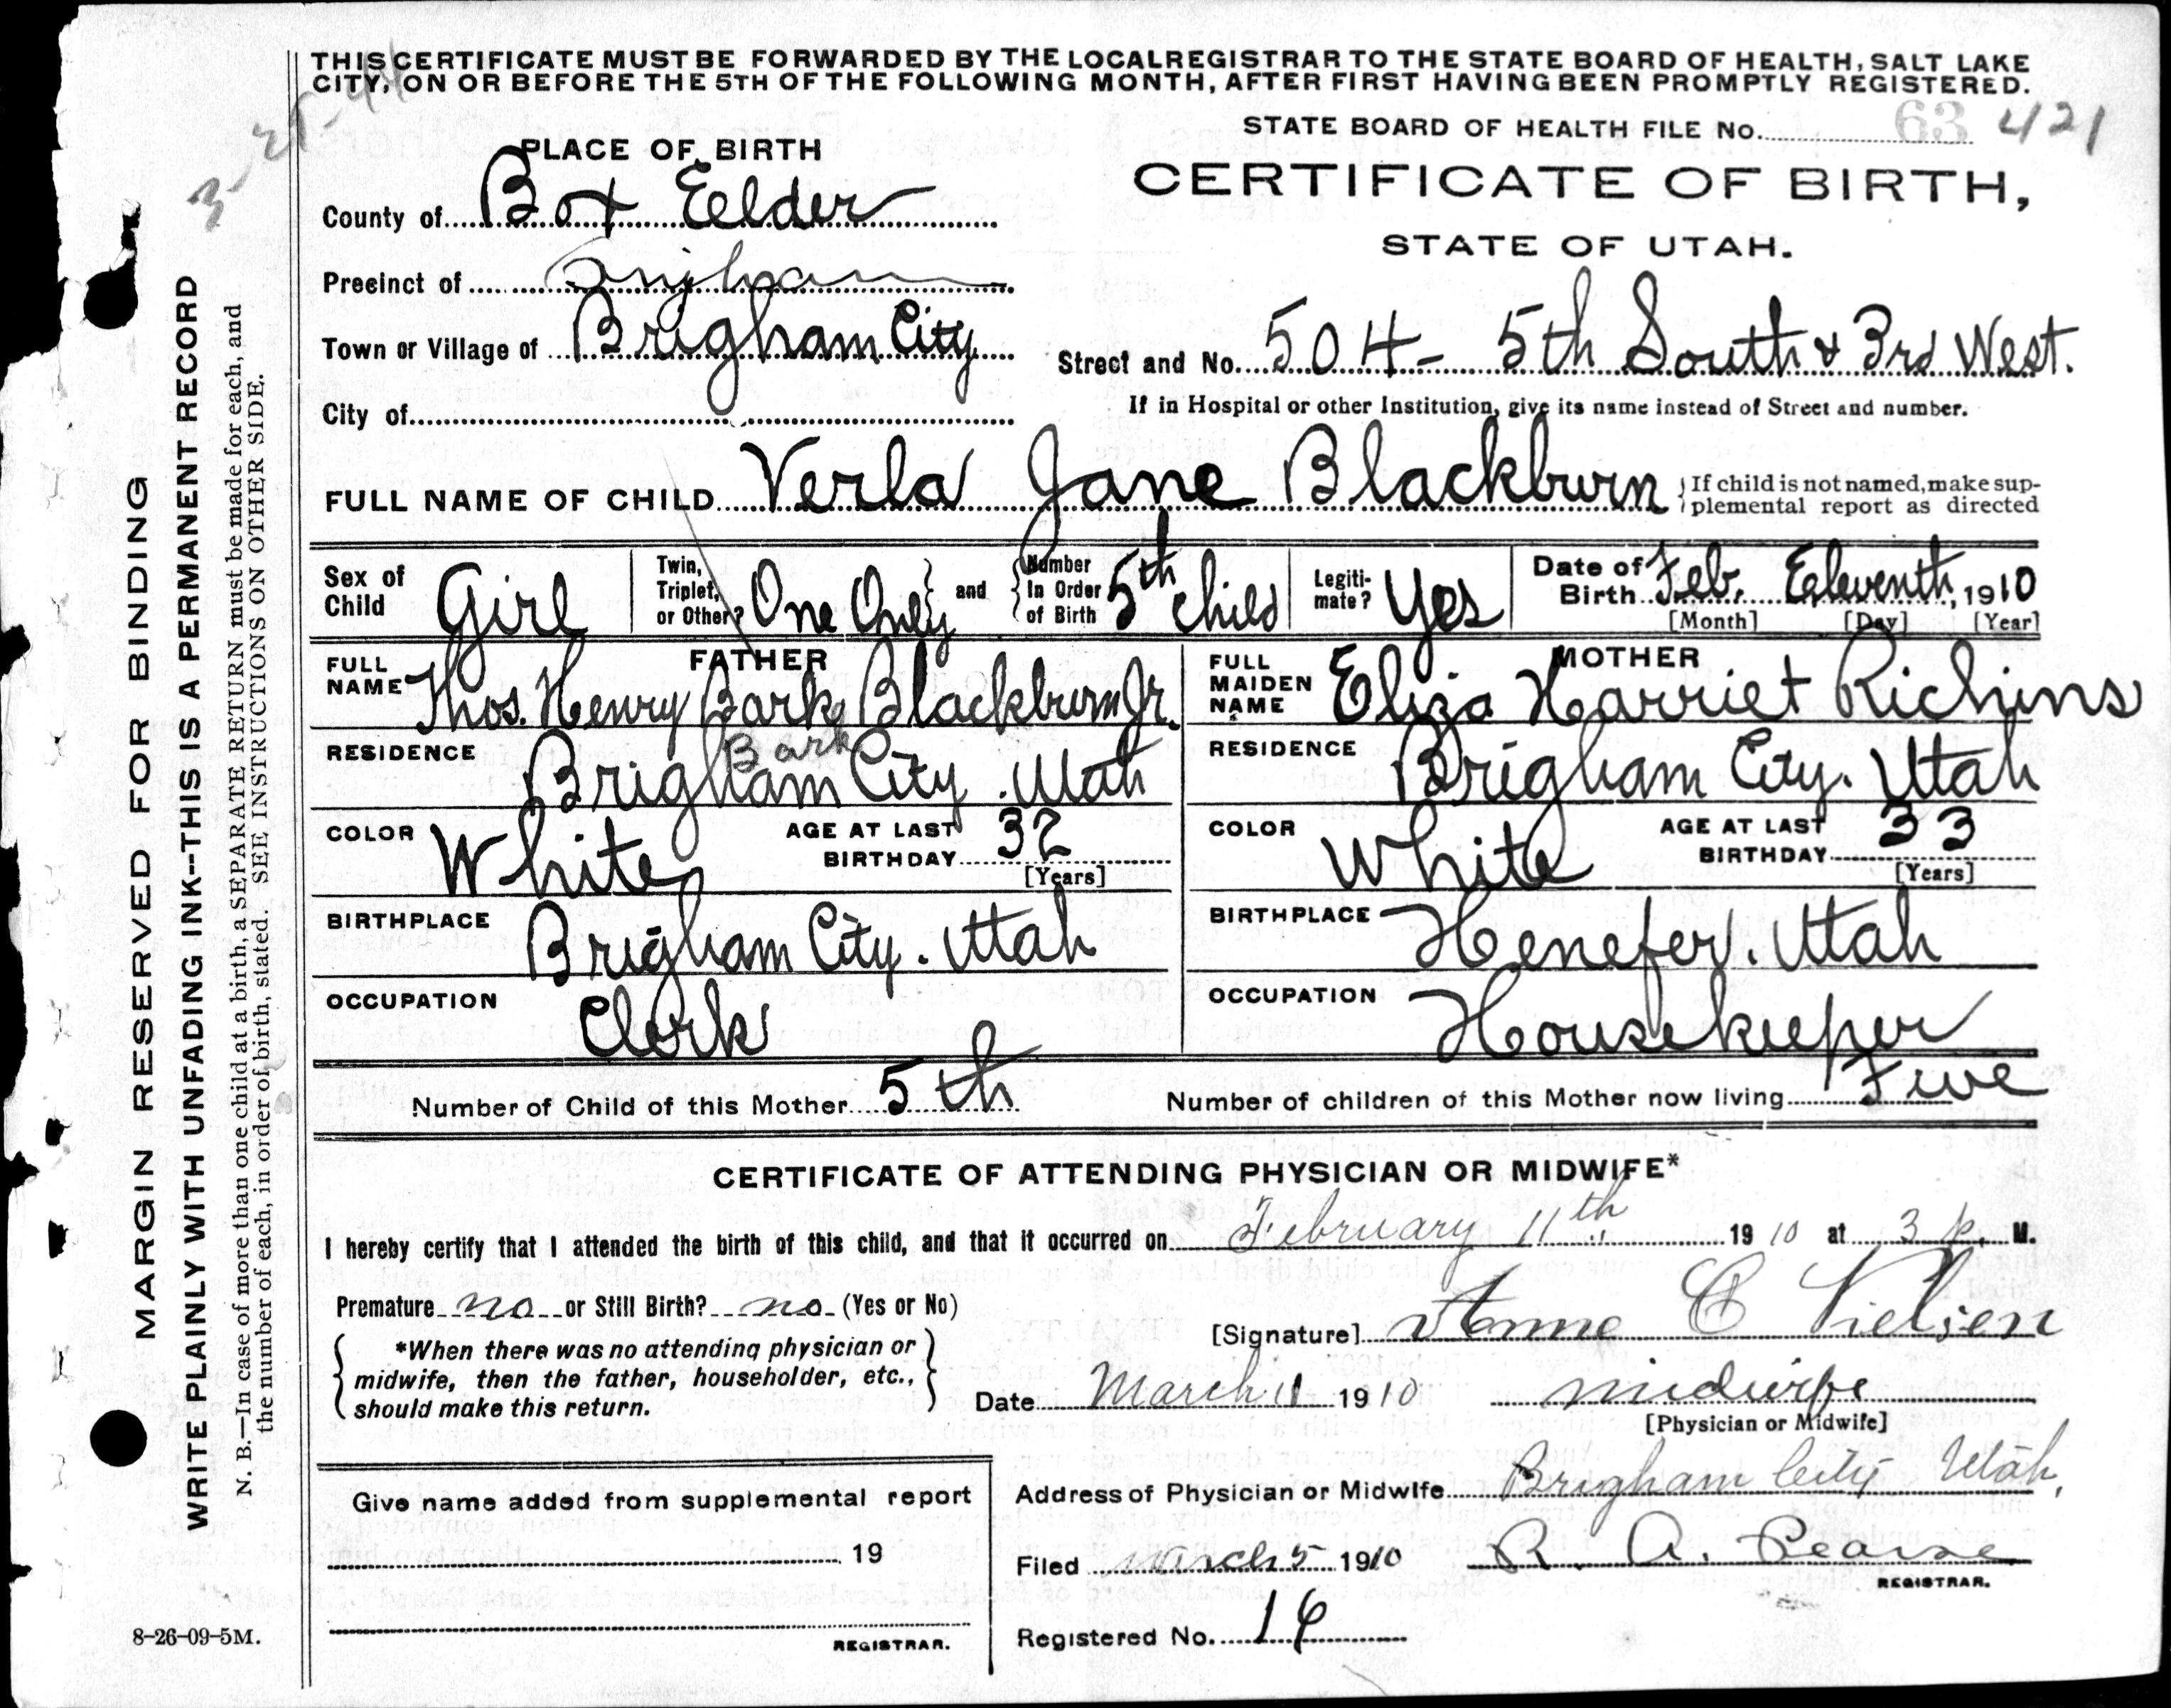 THIS CERTIFICATE MUST BE FORWARDED BY THE LOCAL REGISTRAR TO THE STATE BOARD OF HEALTH, SALT LAKE
CITY, ON OR BEFORE THE 5TH OF THE FOLLOWING MONTH, AFTER FIRST HAVING BEEN PROMPTLY REGISTERED.
STATE BOARD OF HEALTH FILE No. 63 421
PLACE OF BIRTH
CERTIFICATE OF BIRTH,
STATE OF UTAH.
County of Box Eelder
Precinct of Brigham
Town or Village of Brigham City
Street and No. 504- 5th South & 3rd West.
City of
If in Hospital or other Institution, give its name instead of Street and number.
FULL NAME OF CHILD Verla Jane Blackburn { If child is not named, make sup-
plemental report as directed
Sex of Child Girl Twin, Triplet, or Other? One Only } and { Number In Order of Birth 5th child Legiti-mate? Yes Date of Birth Feb. Eeleventh, 1910
[Month] [Day] [Year]
FATHER
FULL NAME Thos. Henry Bark Blackburn Jr.
Bark
RESIDENCE Brigham City. Utah
COLOR White AGE AT LAST BIRTHDAY 32
[Years]
BIRTHPLACE Brigham City. Utah
OCCUPATION Clerk
MOTHER
FULL MAIDEN NAME Eliza Harriet Richins
RESIDENCE Brigham City. Utah
COLOR White AGE AT LAST BIRTHDAY 33
[Years]
BIRTHPLACE Henefer. Utah
OCCUPATION Housekeeper
Number of Child of this Mother 5th Number of children of this Mother now living Five
CERTIFICATE OF ATTENDING PHYSICIAN OR MIDWIFE*
I hereby certify that I attended the birth of this child, and that it occurred on February 11th 1910 at 3 p. M.
Premature no or Still Birth? no (Yes or No)
[Signature] Anne C Nielsen
{ *When there was no attending physician or
midwife, then the father, householder, etc.,
should make this return. }
Date March 1 1910 midwife
[Physician or Midwife]
Address of Physician or Midwife Brigham City Utah,
Give name added from supplemental report
19
REGISTRAR.
Filed March 5 1910 R. A. Pearse
REGISTRAR.
Registered No. 16
8-26-09-5M.
MARGIN RESERVED FOR BINDING
WRITE PLAINLY WITH UNFADING INK--THIS IS A PERMANENT RECORD
N. B.—In case of more than one child at a birth, a SEPARATE RETURN must be made for each, and
the number of each, in order of birth, stated. SEE INSTRUCTIONS ON OTHER SIDE.